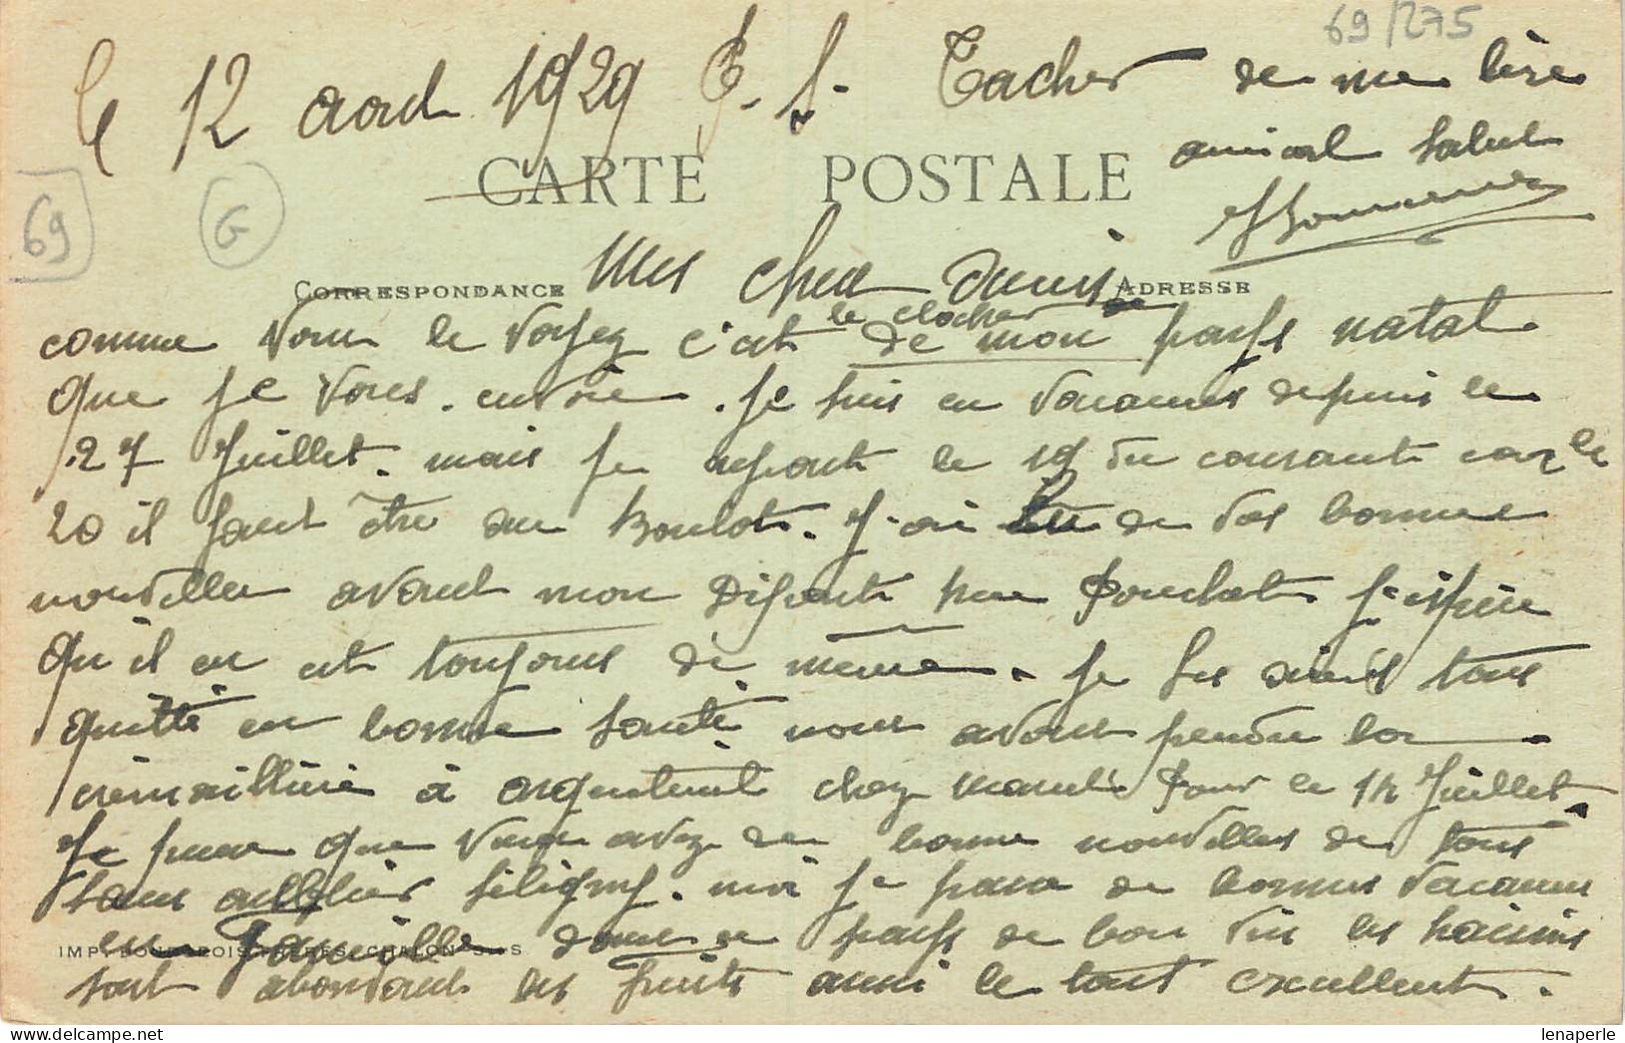 69/275
Le 12 aout 1929 P.S. Tacher de me lire
amical salut
CARTE POSTALE
69
G
CORRESPONDANCE
Mes cher amis
ADRESSE
comme vous le voyez c'est le clocher de mon pays natal
que je vous envoie. Je suis en vacances depuis le
27 Juillet. mais je repart le 19 du courant car le
20 il faut être au Boulot. J'ai eu de vos bonne
nouvelles avant mon Départ par Ponchet J'espère
qu'il en est toujours de même. Je les ai tous
quitté en bonne santé nous avons pendu la
crémaillière à argenteuil chez pour le 14 Juillet.
Je pense que vous avez de bonne nouvelles de tous
sans oublier Seligny. moi je passe de bonnes vacances
en famille dans ce pays de bon vin les raisins
IMP. BOURGEOIS FRÈRES, CHALON-S-S
sont abondant les fruits aussi le tout excellent.
lenaperle